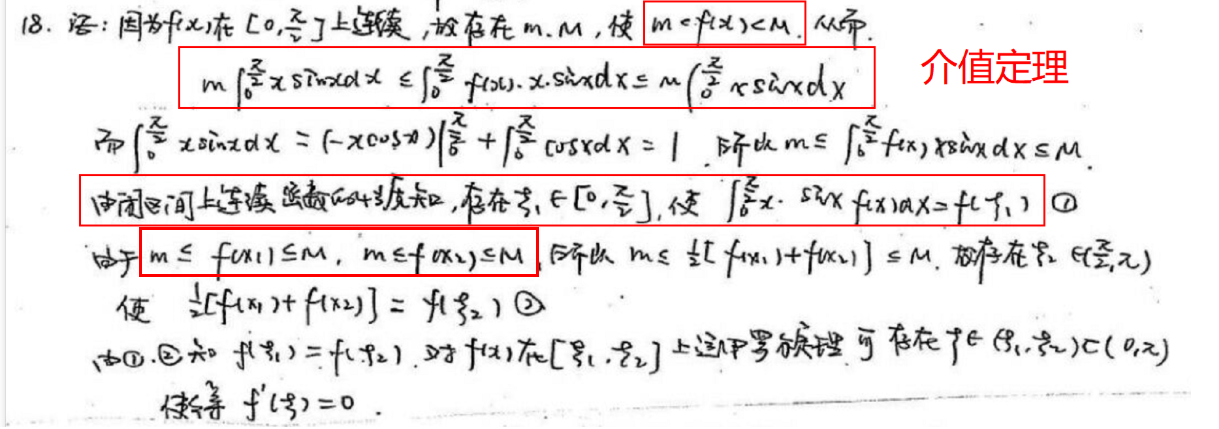 18. 证：因为f(x)在[0,π/2]上连续，故存在m.M，使 m<f(x)<M. 从而.
m∫₀^(π/2) x sinxdx ≤ ∫₀^(π/2) f(x).x.sinxdx ≤ M∫₀^(π/2) x sinxdx 介值定理
而∫₀^(π/2) x sinxdx = (-xcosx)|₀^(π/2) + ∫₀^(π/2) cosxdx = 1 所以 m≤∫₀^(π/2) f(x)xsinxdx≤M.
由闭区间上连续函数的性质知，存在ξ₁∈[0,π/2]，使 ∫₀^(π/2) x·sinx f(x)dx=f(ξ₁) ①
由于 m≤f(x₁)≤M，m≤f(x₂)≤M，所以 m≤½[f(x₁)+f(x₂)]≤M. 故存在ξ₂∈(π/2,π)
使 ½[f(x₁)+f(x₂)]=f(ξ₂) ②
由①.②知 f(ξ₁)=f(ξ₂). 对f(x)在[ξ₁.ξ₂]上运用罗尔定理 可存在ξ∈(ξ₁.ξ₂)⊂(0,π)
使得 f'(ξ)=0.